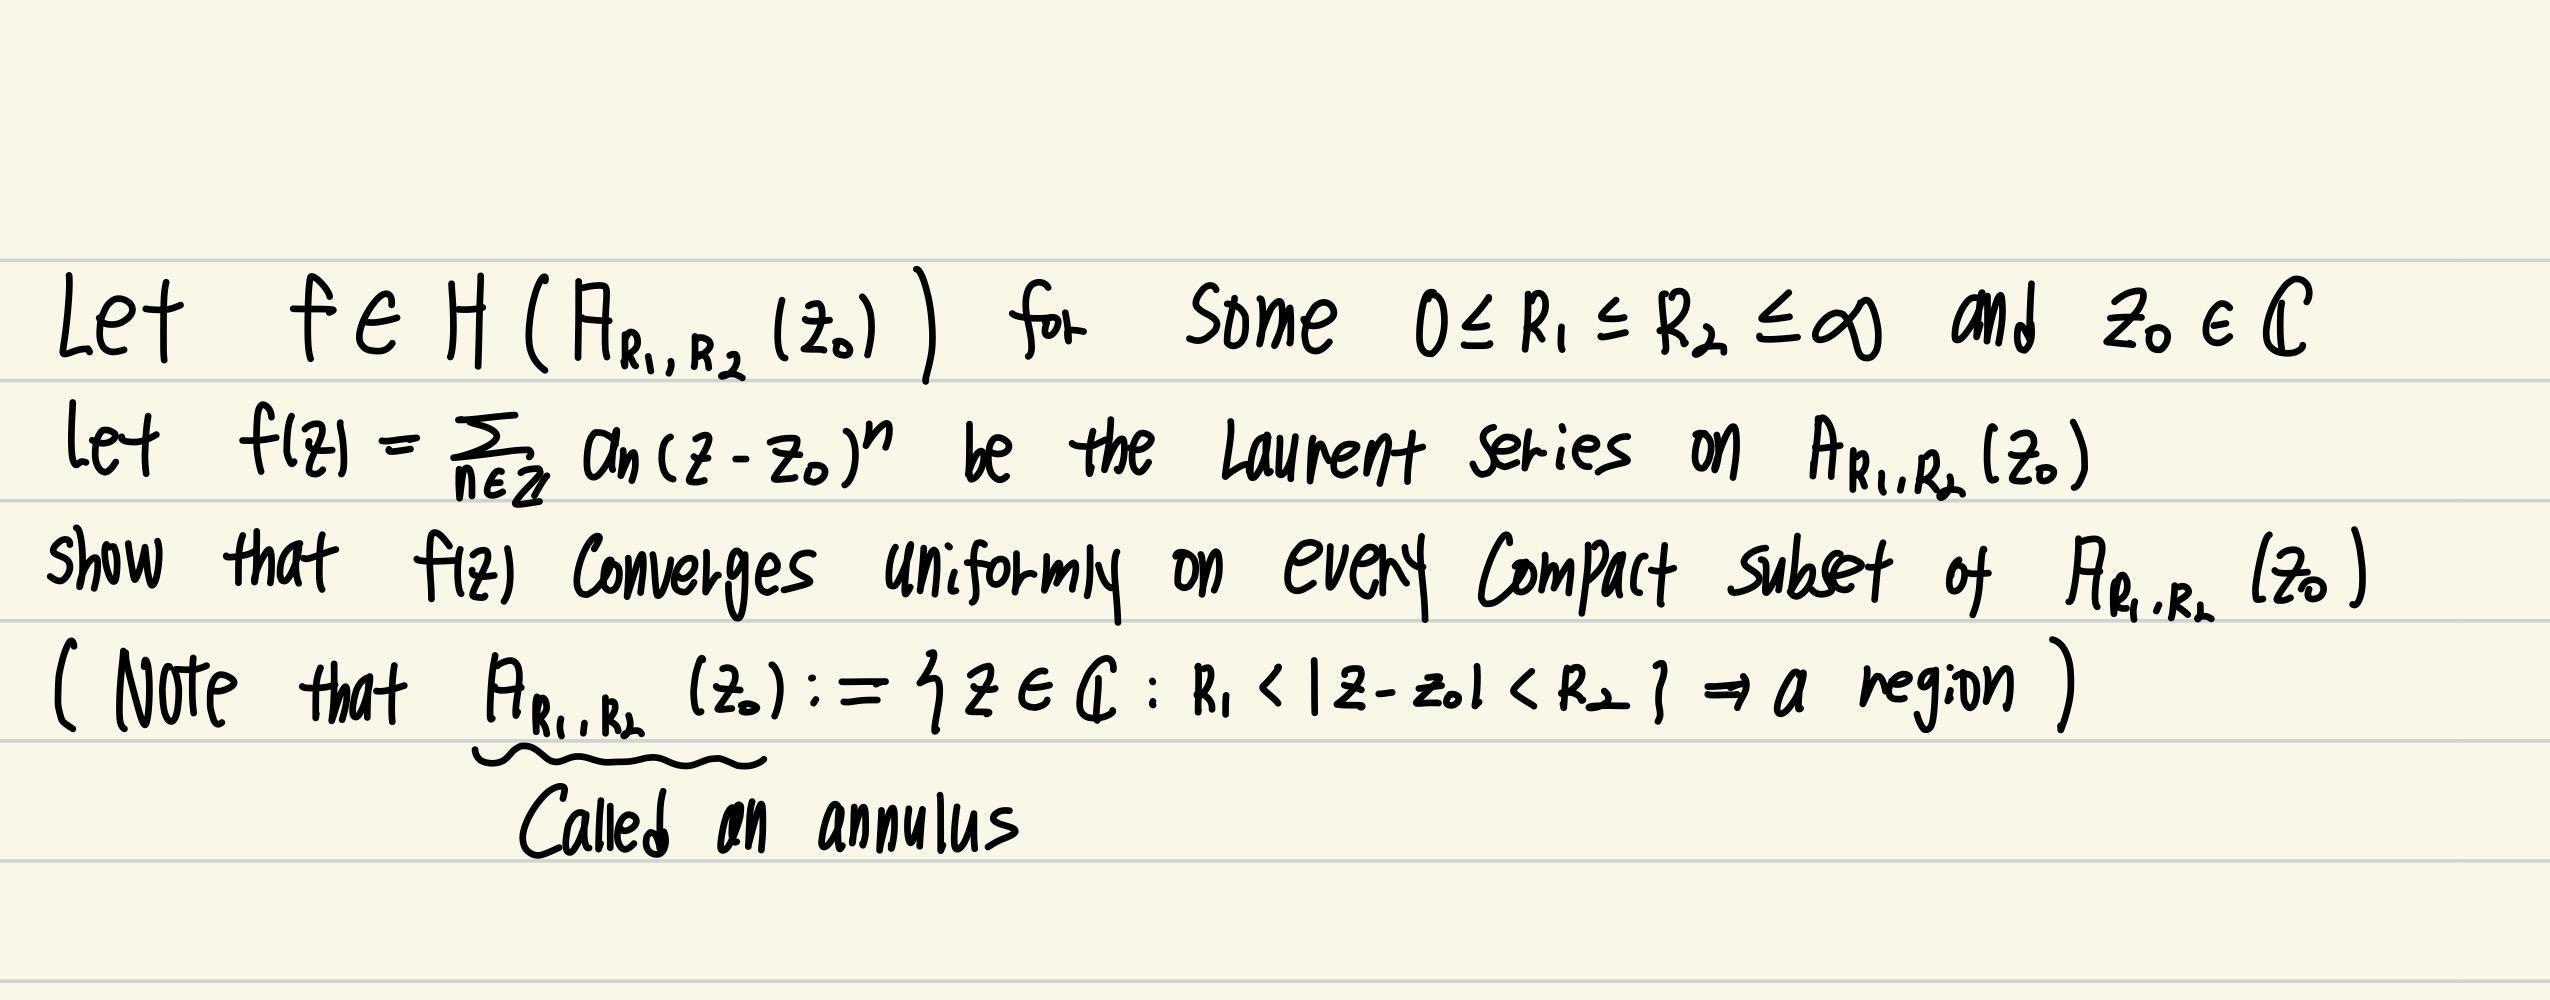 Let f ∈ H (A_{R₁,R₂} (z₀)) for some 0 ≤ R₁ ≤ R₂ ≤ ∞ and z₀ ∈ ℂ
Let f(z) = ∑_{n∈ℤ} an (z - z₀)ⁿ be the Laurent series on A_{R₁,R₂} (z₀)
show that f(z) Converges uniformly on every Compact subset of A_{R₁,R₂} (z₀)
(Note that A_{R₁,R₂} (z₀) := {z ∈ ℂ : R₁ < |z - z₀| < R₂} ⇒ a region)
Called an annulus